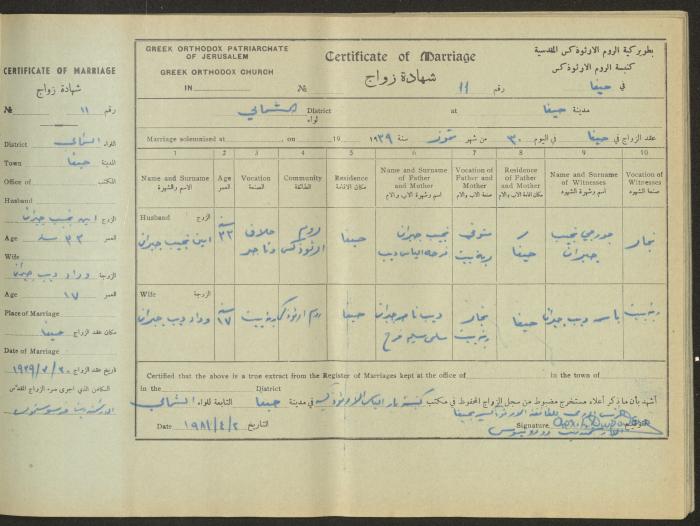 CERTIFICATE OF MARRIAGE
شهادة زواج
№ ١١ رقم
District الشمالي اللواء
Town حيفا المدينة
Office of المكتب
Husband
الزوج امين نجيب جبران
Age ٣٣ سنة العمر
Wife
الزوجة وداد ديب جبران
Age ١٧ العمر
Place of Marriage
مكان عقد الزواج حيفا
Date of Marriage
تاريخ عقد الزواج
GREEK ORTHODOX PATRIARCHATE
OF JERUSALEM
GREEK ORTHODOX CHURCH
IN
Certificate of Marriage
شهادة زواج
№ ١١ رقم
بطريركية الروم الارثوذكس المقدسية
كنيسة الروم الارثوذكس
في حيفا
الشمالي District لواء at حيفا مدينة
Marriage solemnised at , on 19 ١٩٣٩ سنة تموز من شهر ٣٠ في اليوم حيفا عقد الزواج في
1 2 3 4 5 6 7 8 9 10
Name and Surname الاسم والشهرة
Age العمر
Vocation الصنعة
Community الطائفة
Residence مكان الاقامة
Name and Surname of Father and Mother اسم وشهرة الاب والام
Vocation of Father and Mother صنعة الاب والام
Residence of Father and Mother مكان اقامة الاب والام
Name and Surname of Witnesses اسم وشهرة الشهود
Vocation of Witness صنعة الشهود
Husband الزوج
امين نجيب جبران
سنة ٣٣
حلاق وتاجر
روم ارثوذكس
حيفا
نجيب جبران
فرحه الياس ديب
متوفي
ربة بيت
حيفا
جورجي نجيب جبران
نجار
Wife الزوجة
وداد ديب جبران
سنة ١٧
ربة بيت
روم ارثوذكس
حيفا
ديب ناصر جبران
سلمى سليم فرح
نجار
ربة بيت
حيفا
ديب جبران
ربة بيت
Certified that the above is a true extract from the Register of Marriages kept at the office of in the town of
in the District
أشهد بأن ما ذكر أعلاه مستخرج مضبوط من سجل الزواج المحفوظ في مكتب كنيسة مار الياس الارثوذكسية في مدينة حيفا التابعة للواء الشمالي
Date ١٩٨١/٤/٢ التاريخ
Signature